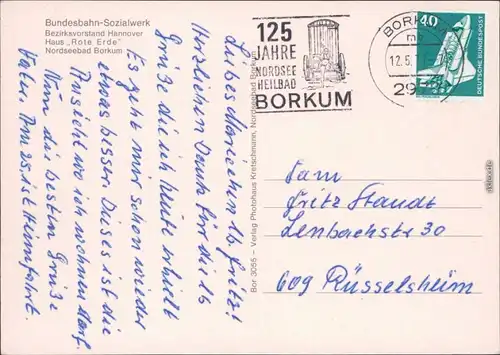 Bundesbahn-Sozialwerk
Bezirksvorstand Hannover
Haus „Rote Erde"
Nordseebad Borkum
Liebes Mariechen lb. Fritz!
Herzlichen Dank für die lb
Grüße die ich heute erhielt
Es geht mir schon wieder
etwas besser. Dieses ist die
Ansicht wo ich wohnen darf.
Nun die besten Grüße
Vater. Am 25. ist Heimfahrt.
Bor 3055 – Verlag Photohaus Kretschmann, Nordseebad Borkum
125
JAHRE
NORDSEE
HEILBAD
BORKUM
BORKUM
12.5.
29
40
DEUTSCHE BUNDESPOST
Fam
Fritz Staudt
Lenbachstr 30
609 Rüsselsheim